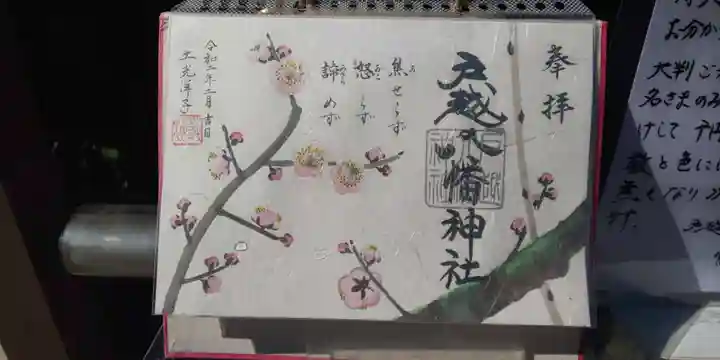 奉拝
戸越八幡神社
焦せらず
怒らず
諦めず
令和二年二月吉日
お分か
大判ご
名さまのみ
けして
数と色に
無くなり
ます。